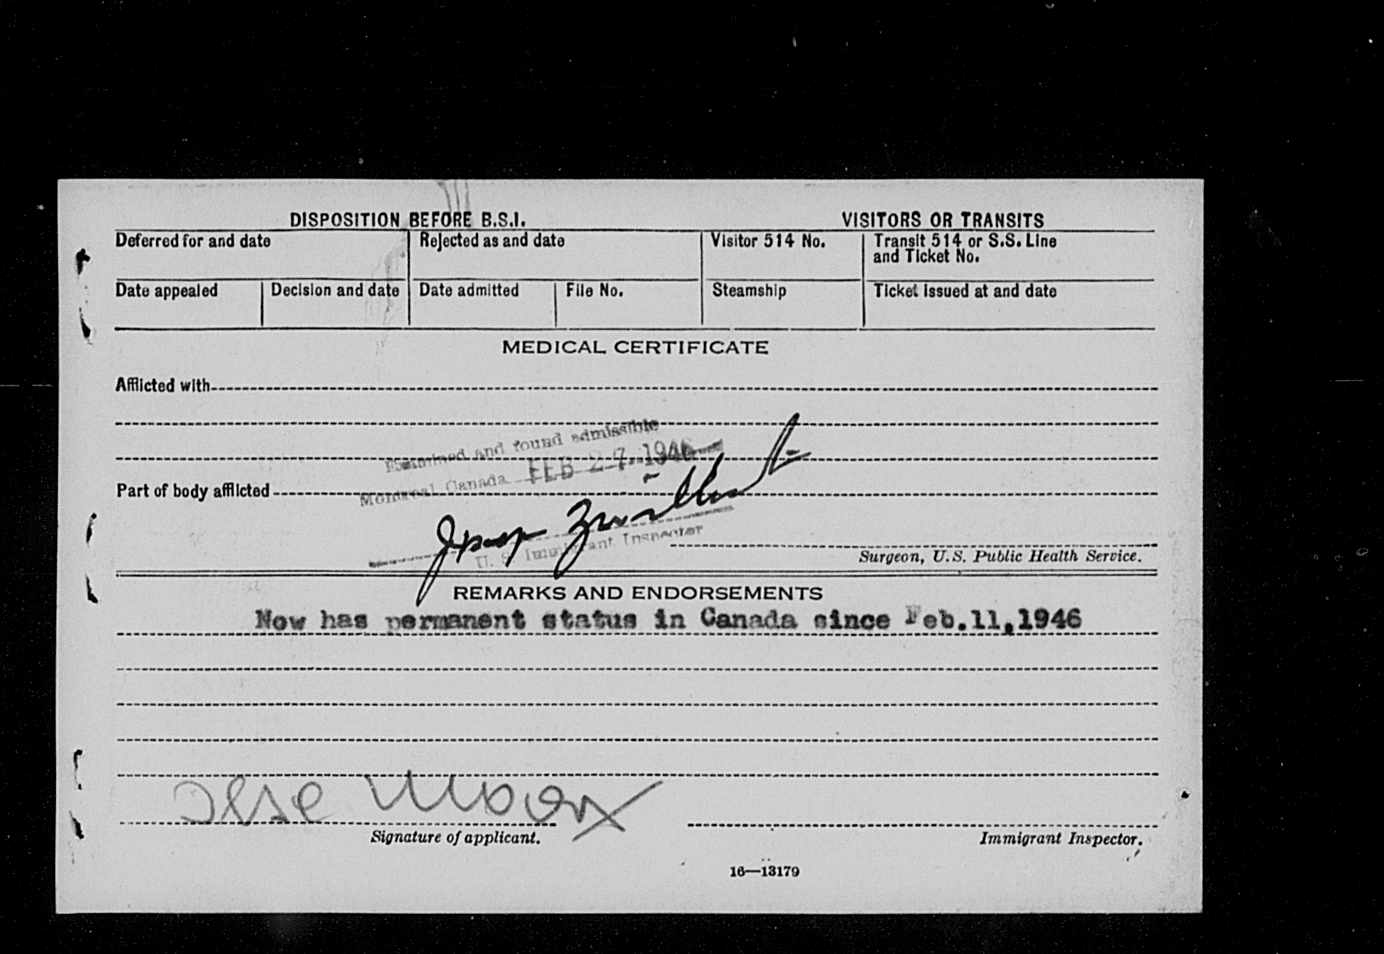 DISPOSITION BEFORE B.S.I. VISITORS OR TRANSITS
Deferred for and date Rejected as and date Visitor 514 No. Transit 514 or S.S. Line
and Ticket No.
Date appealed Decision and date Date admitted File No. Steamship Ticket issued at and date
MEDICAL CERTIFICATE
Afflicted with
Examined and found admissible
Montreal Canada FEB 27 1946
Part of body afflicted
U. S. Immigrant Inspector
Surgeon, U.S. Public Health Service.
REMARKS AND ENDORSEMENTS
Now has permanent status in Canada since Feb.11,1946
Ilse Marx
Signature of applicant. Immigrant Inspector.
16—13179